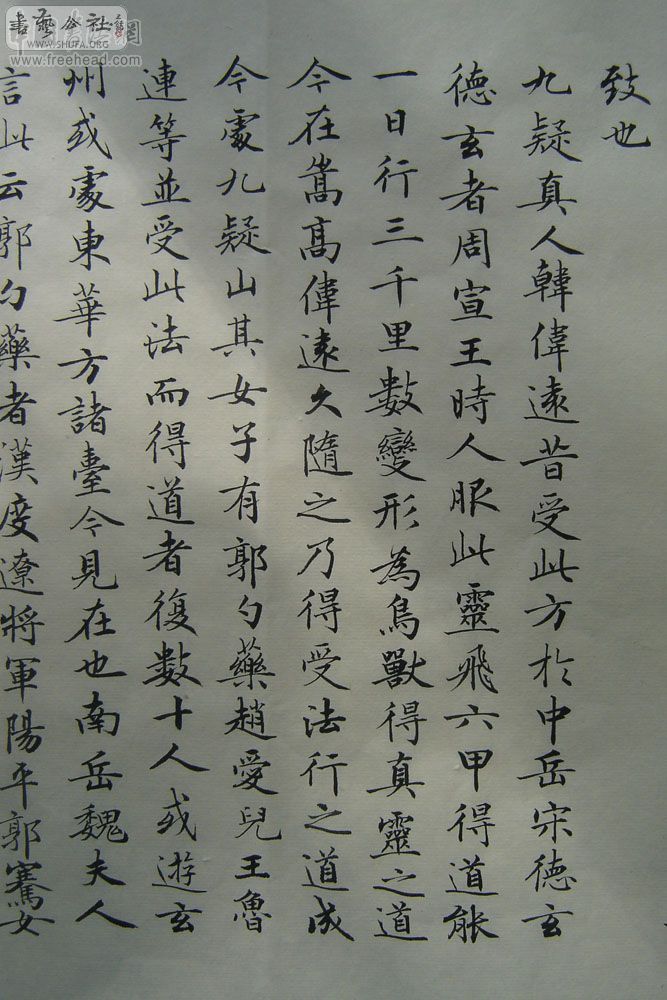 書藝公社
WWW.SHUFA.ORG
www.freehead.com
致也
九疑真人韓偉遠昔受此方於中岳宋德玄
德玄者周宣王時人服此靈飛六甲得道能
一日行三千里數變形為鳥獸得真靈之道
今在嵩高偉遠久隨之乃得受法行之道成
今處九疑山其女子有郭勺藥趙愛兒王魯
連等並受此法而得道者復數十人或遊玄
州或處東華方諸臺今見在也南岳魏夫人
言此云郭勺藥者漢度遼將軍陽平郭騫女